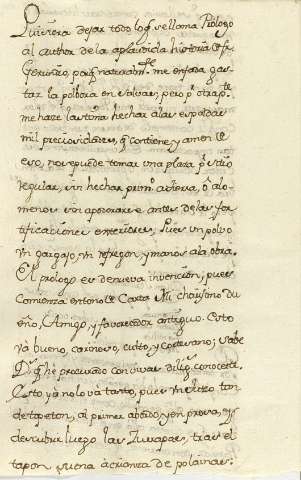 Quisiera dejar todo lo q̃ se llama Prologo
al author de la aplaudida historia de fr.
Gerundio, porq̃ naturalm.te me enfada gas-
tar la polbora en salvas, pero p.r otra p.te
me haze lastima hechar a las espaldas
mil preciosidades, q̃ contiene, y amen de
eso, no se puede tomar una plaza p.r sitio
regular, sin hechar prim.o a tierra, o alo-
menos sin apoderarse antes de las for-
tificaciones exteriores. Pues un polvo
un gargajo, un refregon, y manos a la obra.
El prologo es de nueva invencion, pues
comienza en tono de Carta Mi chaisimo du
eño, Amigo, y favorecedor antiguo. Esto
va bueno, cariñoso, culto, y cortesano; sabe
Dios q̃ he procurado con vivas dilig.s conocerte.
Esto ya no lo va tanto, pues
de tapeton, al primer abordo, y en prosa, es
descubrir luego las zurrapas, tras el
tapon suena a crianza de polainas.